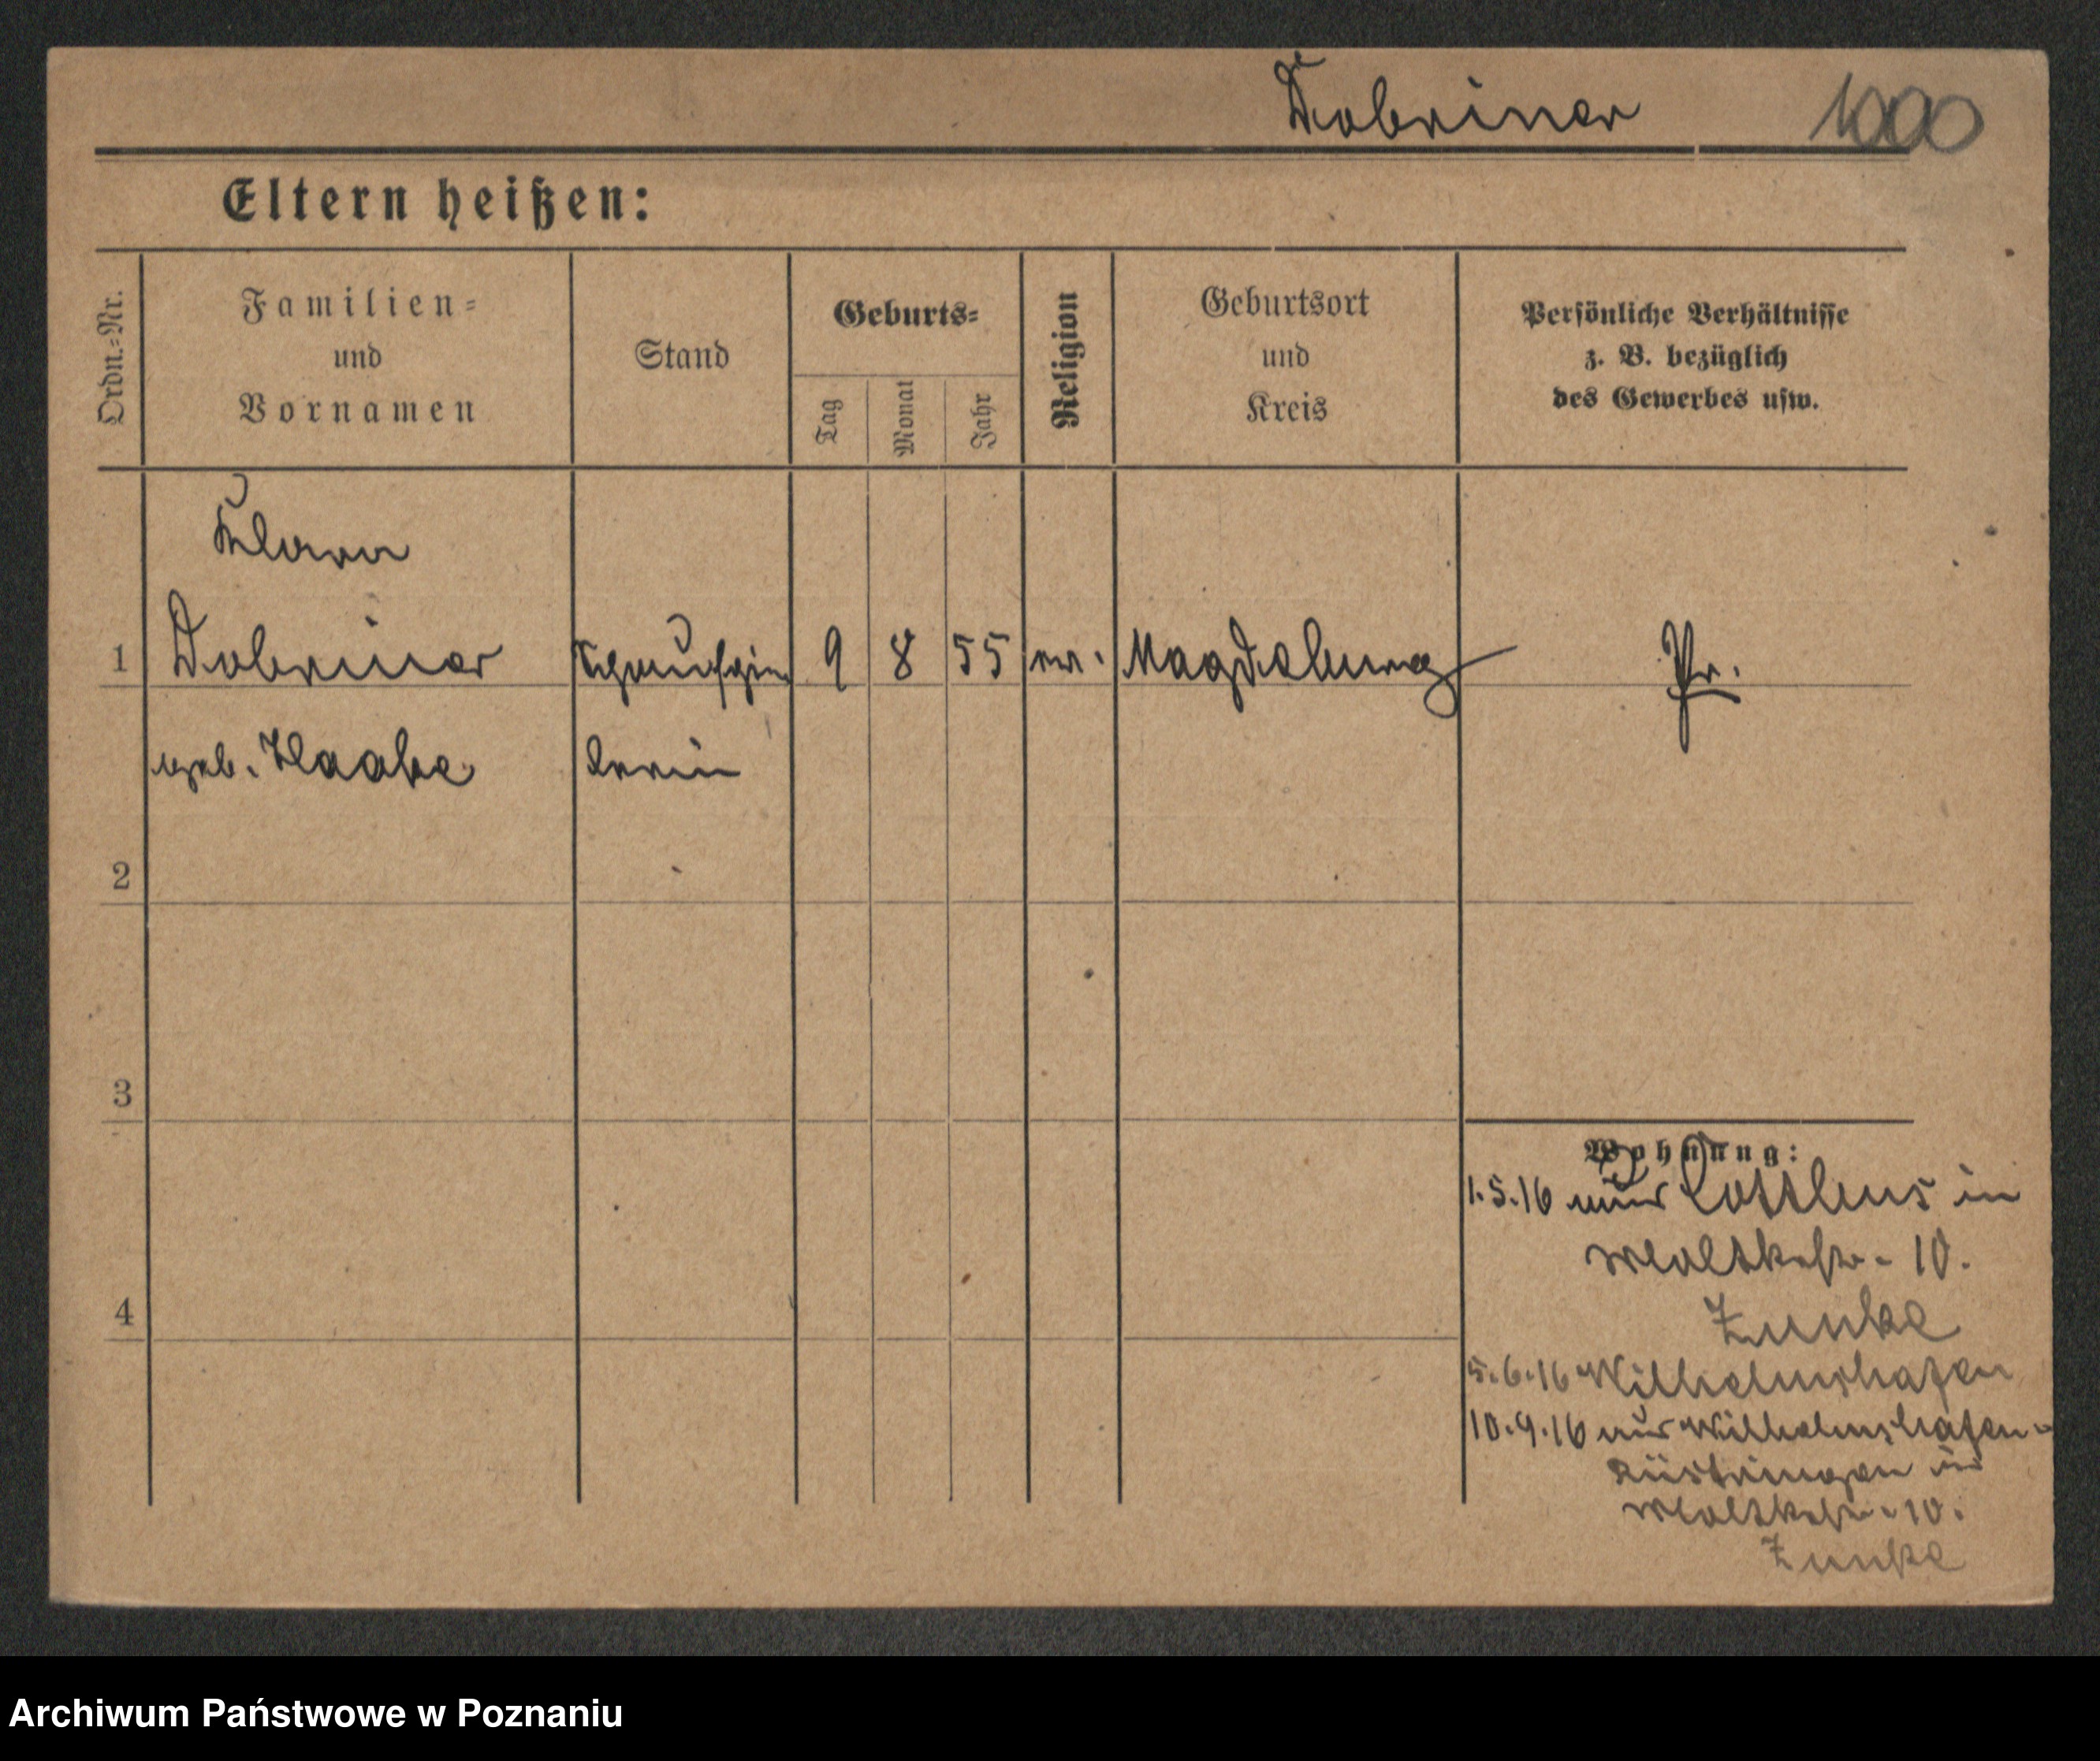 Dobriner 1000
Eltern heißen:
Ordn.-Nr.
Familien-
und
Vornamen
Stand
Geburts-
Tag
Monat
Jahr
Religion
Geburtsort
und
Kreis
Persönliche Verhältnisse
z. B. bezüglich
des Gewerbes usw.
Klara
1 Dobriner Schauspie 9 8 55 ev. Magdeburg Pr.
geb. Haabe lerin
2
3
4
Wohnung:
1.5.16 nur Cottbus in
Moltkestr. 10.
Zunke
5.6.16 Wilhelmshafen
10.9.16 aus Wilhelmshafen-
Rüstringen in
Moltkestr. 10.
Zunke
Archiwum Państwowe w Poznaniu